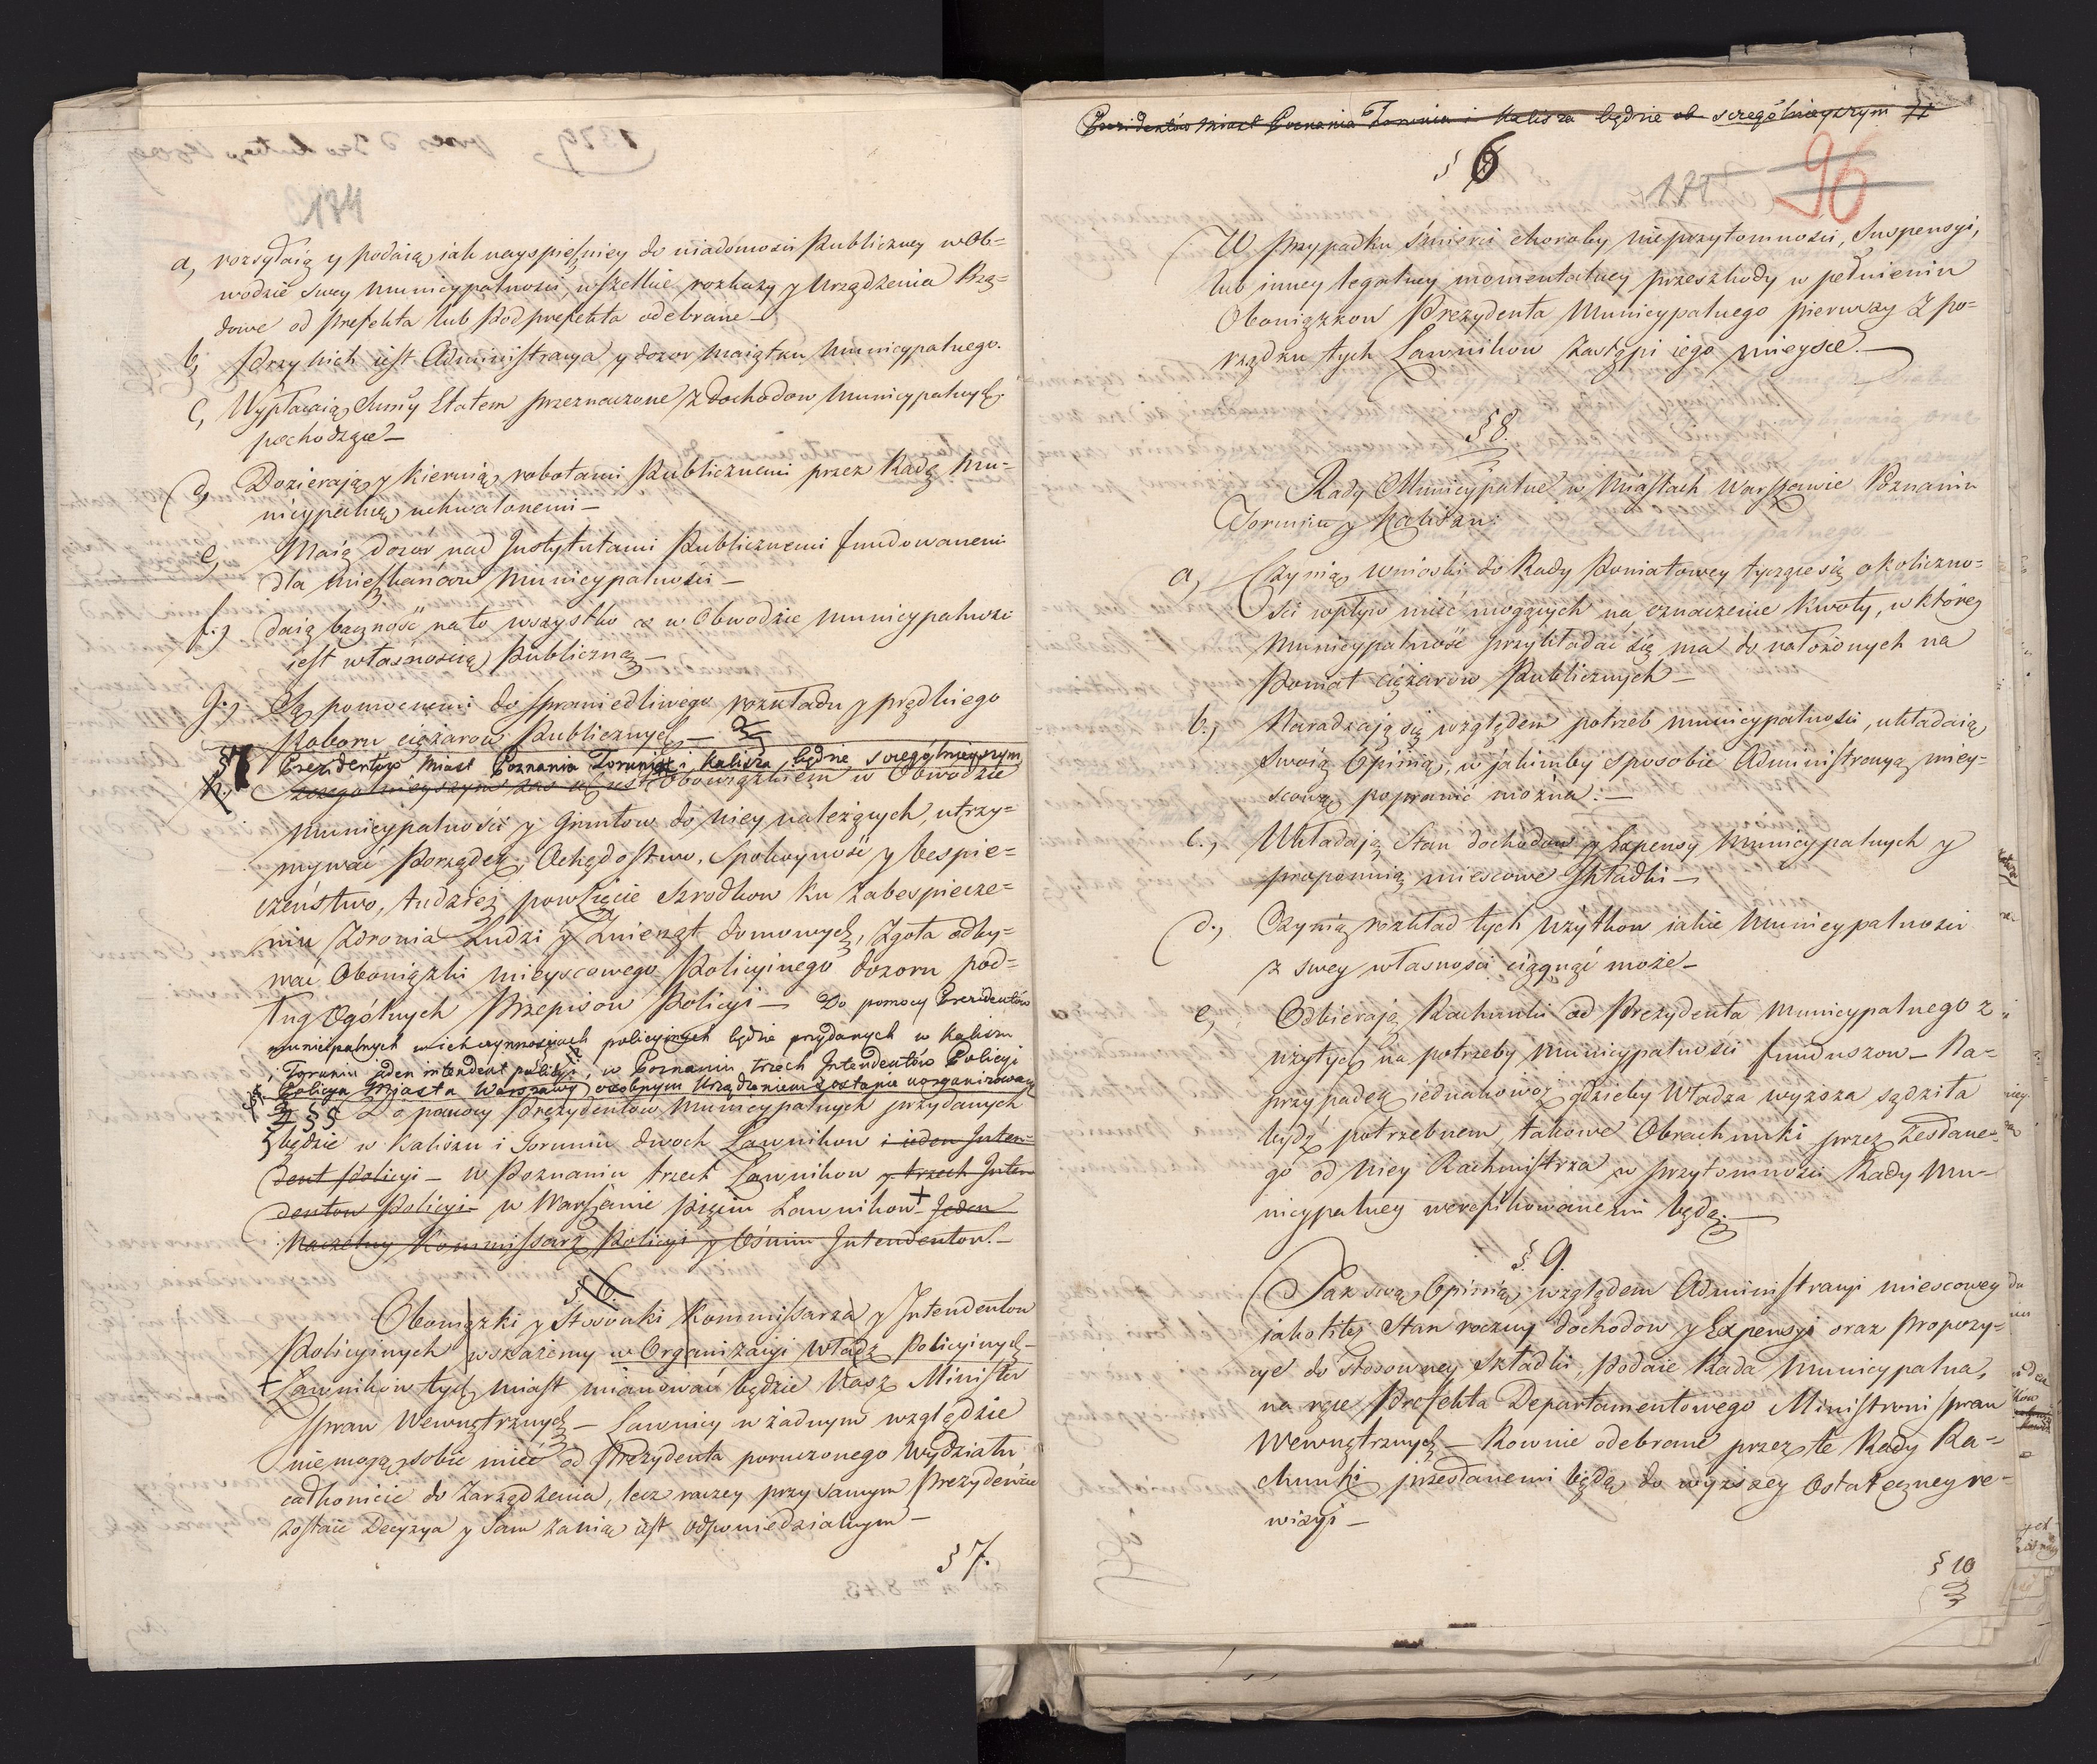 174
a, rozsyłaią y podaią jak nayspieszniey do wiadomosci Publiczney w Ob=
wodzie swey Municypalnosci, wszelkie rozkazy y Urządzenia Rzą=
dowe od Prefekta lub Podprefekta odebrane —
b, Przy nich iest Administracya y dozor Maiątku Municypalnego.
c, Wypłacaią Summy Etatem przeznaczone z dochodow Municypalnych
pochodzące —
d, Dozieraią y kieruią robotami Publicznemi przez Radę Mu=
nicypalną uchwalonemi —
e, Maią dozor nad Instytutami Publicznemi fundowanemi
dla Mieszkańcow Municypalności —
f., daią baczność na to wszystko co w Obwodzie Municypalności
iest własnością Publiczną —
g., Są pomocnemi do sprawiedliwego rozkładu y prędkiego
Poboru ciężarow Publicznych —
§ 7 Prezidentów Miast Poznania Torunia i Kalisza będzie scególnieyszym
h. Szczegolnieyszym zas ich iest Obowiązkiem w Obwodzie
Municypalności y Gruntow do niey należących, utrzy=
mywać Porządek, Ochędostwo, Spokoyność y bespie=
czeństwo, tudzież powzięcie Srodkow ku Zabespiecze=
niu Zdrowia Ludzi y Zwierząt domowych, Zgoła odby=
wać Obowiązki mieyscowego Policyinego dozoru pod=
ług Ogólnych Przepisow Policyi — Do pomocy Prezidentów
municipalnych w ich czynnosciach policyinych będzie przydanych w Kaliszu
i Toruniu ieden intendent policyi, w Poznaniu trzech Intendentów Policyi
Policya Miasta Warszawy osobnym Urządzeniem zostanie uorganizowaną
§ Do pomocy Prezydentow Municypalnych przydanych
będzie w Kaliszu i Toruniu dwoch Ławnikow i ieden Inten=
dent Policyi — w Poznaniu trzech Ławnikow y trzech Inten
dentow Policyi — w Warszawie pięciu Ławnikow + Jeden
Naczelny Kommissarz Policyi y Ośmiu Intendentow. —
§ 6.
Obowiązki y Stosunki Kommissarza y Intendentow
Policyinych wskażemy w Organizacyi Władz Policyinych —
+ Ławnikow tych miast mianować będzie Nasz Minister
Spraw Wewnętrznych — Ławnicy w żadnym względzie
nie mogą sobie mieć od Prezydenta poruczonego Wydziału
całkowicie do Zarządzenia, lecz raczey przy samym Prezydencie
zostaie Decyzya y Sam za nią iest odpowiedzialnym —
§ 7.
Prezidentów Miast Poznania Torunia i Kalisza będzie ob scególnieyszym
§ 6
175
96
W przypadku śmierci choroby nieprzytomnosci, Suspensyi,
lub inney legalney momentalney przeszkody w pełnieniu
Obowiązkow Prezydenta Municypalnego pierwszy z po=
rządku tych Ławnikow zastąpi iego mieysce. —
§ 8.
Rady Municypalne w Miastach Warszawie Poznaniu
Toruniu y Kaliszu:
a, Czynią wnioski do Rady Powiatowey tyczące się okoliczno=
ści wpływ mieć mogących na oznaczenie kwoty, w ktorey
Municypalność przykładać się ma do nałożonych na
Powiat ciężarow Publicznych —
b., Naradzaią się względem potrzeb municypalności, układaią
Swoią Opinią, w jakimby sposobie Administracyą miey=
scową poprawić można: —
c., Układaią Stan dochodow y Expensy Municypalnych y
proponuią miescowe Składki —
d., Czynią rozkład tych użytkow iakie Municypalnosci
z swey własności ciągnąć może —
e, Odbieraią Rachunki od Prezydenta Municypalnego z
użytych na potrzeby Municypalnosci funduszow — Na=
przypadek iednakowoż gdzieby Władza wyższa sądziła
bydź potrzebnem, takowe Obrachunki przez Zesłane=
go od niey Rachmistrza w przytomnosci Rady Mu=
nicypalney weryfikowanemi będą. —
§. 9.
Jak swą Opinią względem Administracyi miescowey
jakotiteż Stan roczny dochodow y Expensyi oraz Propozy=
cye do stosowney składki, podaie Rada Municypalna,
na ręce Prefekta Departamentowego Ministrowi Spraw
Wewnętrznych — Rownie odebrane przez te Rady Ra=
chunki przesłanemi będą do wyższey Ostateczney re=
wizyi —
§ 10